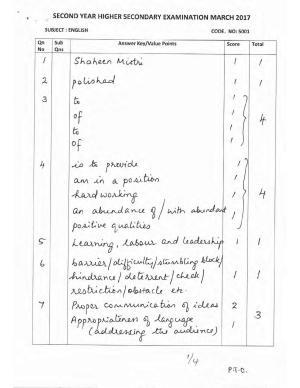 SECOND YEAR HIGHER SECONDARY EXAMINATION MARCH 2017
SUBJECT : ENGLISH CODE. NO: 5001
Qn No Sub Qns Answer Key/Value Points Score Total
1 Shaheen Mistri 1 1
2 polished 1 1
3 to 1
of 1
to 1
of 1
4
4 is to provide 1
am in a position 1
hard working 1
an abundance of / with abundant 1
positive qualities
4
5 Learning, labour and leadership 1 1
6 barrier/difficulty/stumbling block/
hindrance/deterrent/check/ 1 1
restriction/obstacle etc.
7 Proper communication of ideas 2
Appropriateness of language 1
(addressing the audience)
3
1/4
P.T.O.